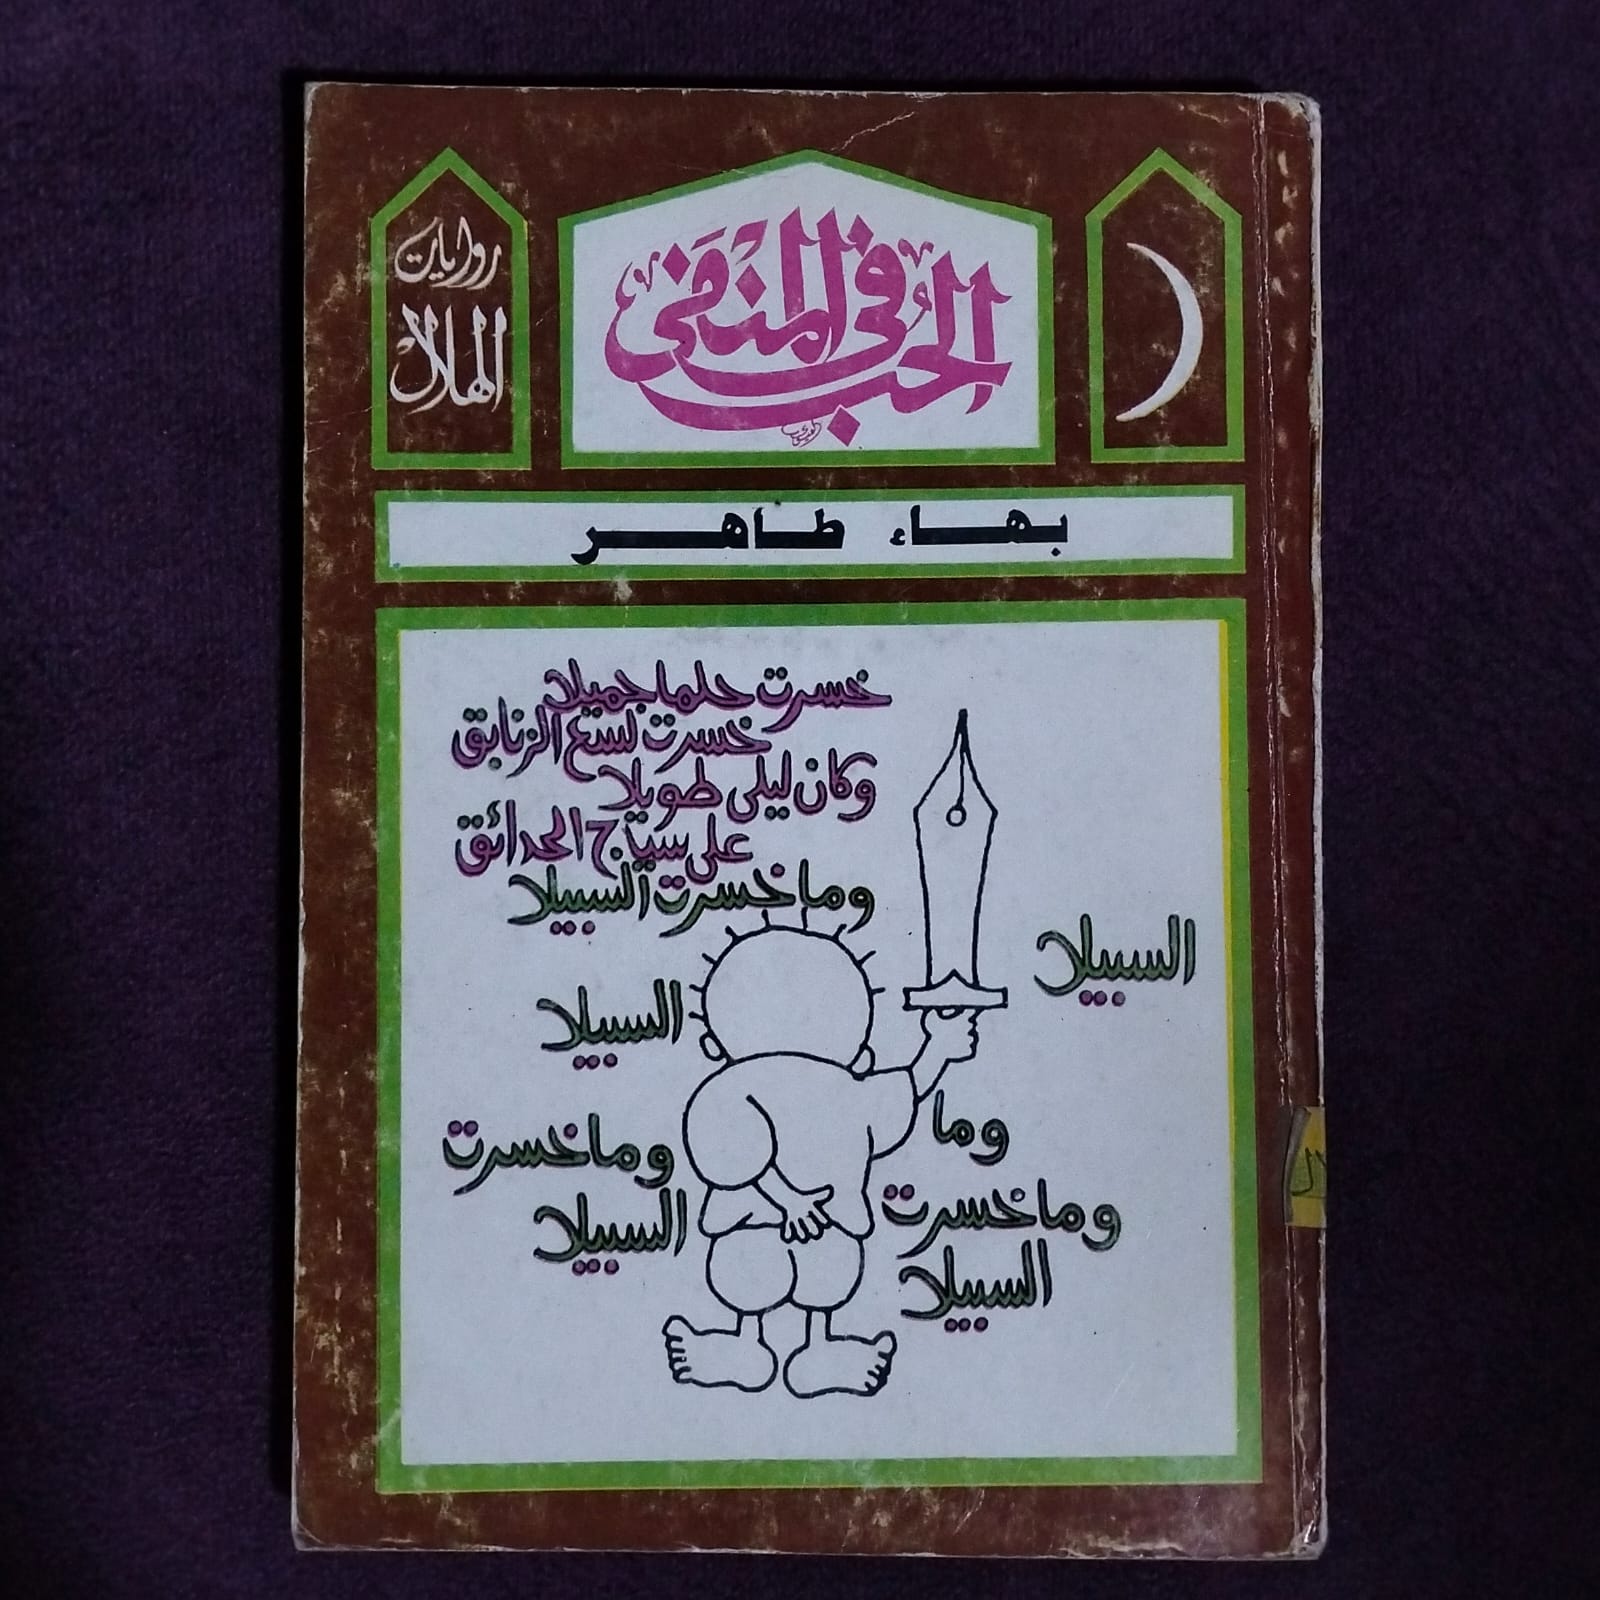 روايات
الهلال
الحب في المنفى
بهاء طاهر
خسرت حلما جميلا
خسرت لسع الزنابق
وكان ليلى طويلا
على سياج الحدائق
وما خسرت السبيلا
السبيلا
السبيلا
وما
وما خسرت
السبيلا
وما خسرت
السبيلا